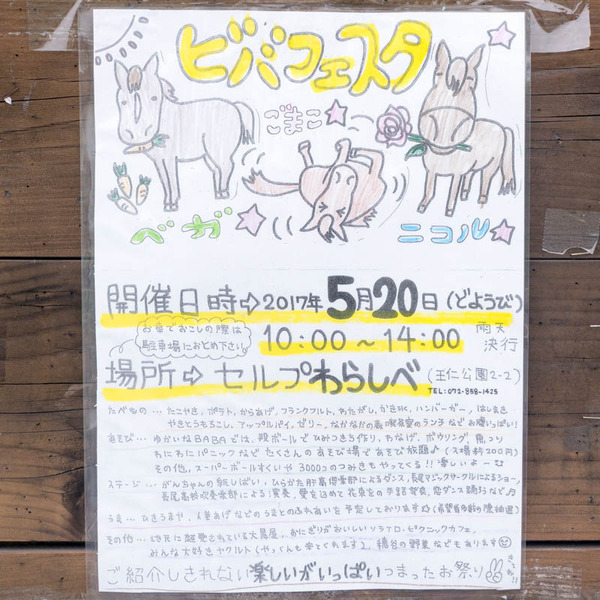 ビバフェスタ
ごまこ
ベガ
ニコル
開催日時⇨2017年5月20日(どようび)
お車でおこしの際は
駐車場におとめ下さい
10:00〜14:00
雨天
決行
場所⇨セルプわらしべ(王仁公園2-2)
TEL:072-858-1425
たべもの…たこやき、ポテト、からあげ、フランクフルト、わたがし、かき氷、ハンバーガー、はしまき
やきとうもろこし、アップルパイ、ゼリー、なかなかの森喫茶室のランチなどお腹いっぱい!
あそび…ゆかいなBABAでは、段ボールでひみつきち作り、わなげ、ボウリング、魚つり
わにわにパニックなどたくさんのあそび場であそび放題♪(入場料200円)
その他、スーパーボールすくいや3000コのつみきもやってくる!!楽しいよーむ
ステージ…がんちゃんの紙しばい、ひらかた肝高倶楽部によるダンス、長尾マジックサークルによるショー、
長尾高校吹奏楽部による演奏、愛をほめて花束を
うま…ひきうまや、人参あげなどのうまとのふれあいを予定しております
その他…地元に超愛されている大黒屋、おにぎりがおいしいソラテロ、ピクニックカフェ、
みんな大好きヤクルト(やっくんも来てくれます)、穂谷の野菜などもあります
ご紹介しきれない楽しいがいっぱいつまったお祭り